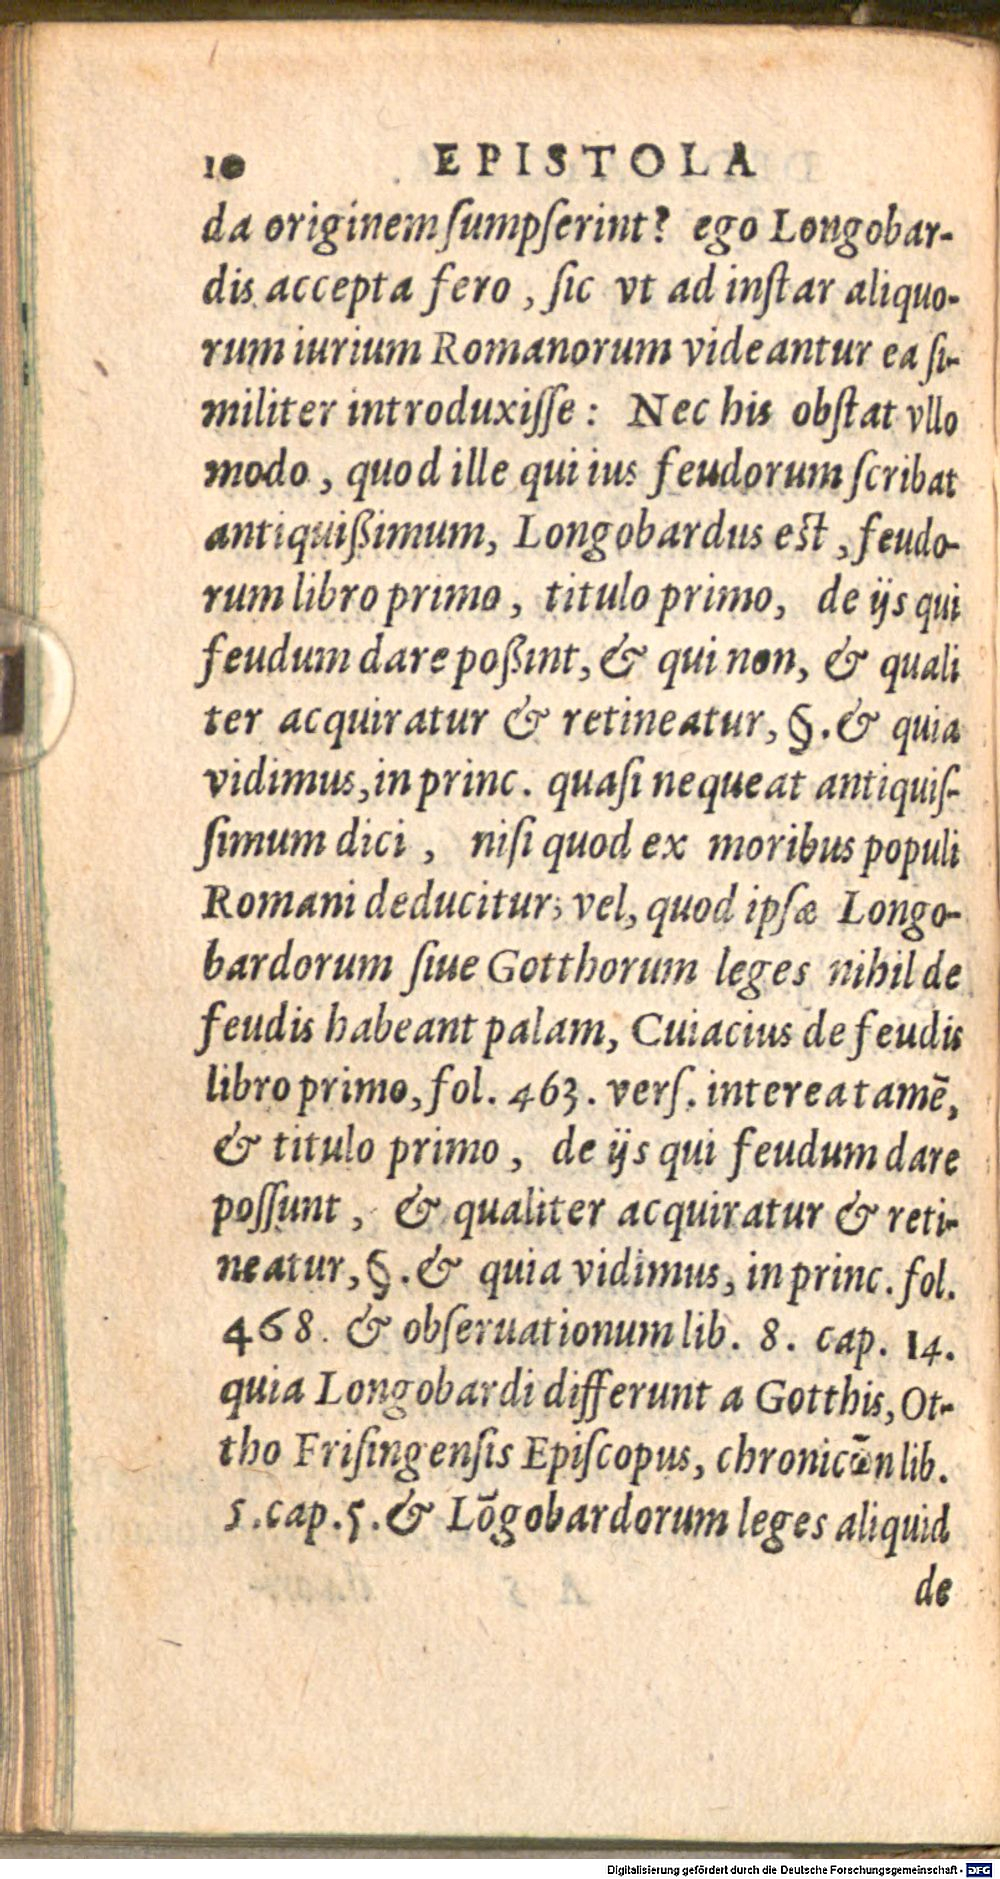 10 EPISTOLA
da originem ſumpſerint? ego Longobar-
dis accepta fero, ſic vt ad inſtar aliquo-
rum iurium Romanorum videantur ea ſi-
militer introduxiſſe: Nec his obſtat vllo
modo, quod ille qui ius feudorum ſcribat
antiquißimum, Longobardus eſt, feudo-
rum libro primo, titulo primo, de ijs qui
feudum dare poßint, & qui non, & quali
ter acquiratur & retineatur, §. & quia
vidimus, in princ. quaſi nequeat antiquiſ-
ſimum dici, niſi quod ex moribus populi
Romani deducitur; vel, quod ipſæ Longo-
bardorum ſiue Gotthorum leges nihil de
feudis habeant palam, Cuiacius de feudis
libro primo, fol. 463. verſ. interea tamē,
& titulo primo, de ijs qui feudum dare
poſſunt, & qualiter acquiratur & reti-
neatur, §. & quia vidimus, in princ. fol.
468. & obſeruationum lib. 8. cap. 14.
quia Longobardi differunt a Gotthis, Ot-
tho Friſingenſis Epiſcopus, lib.
5. cap. 5. & Lōgobardorum leges aliquid
de
Digitalisierung gefördert durch die Deutsche Forschungsgemeinschaft - DFG